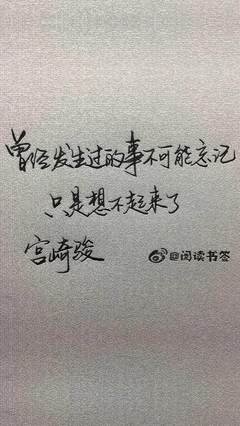 曾经发生过的事不可能忘记
只是想不起来了
宫崎骏
@阅读书签